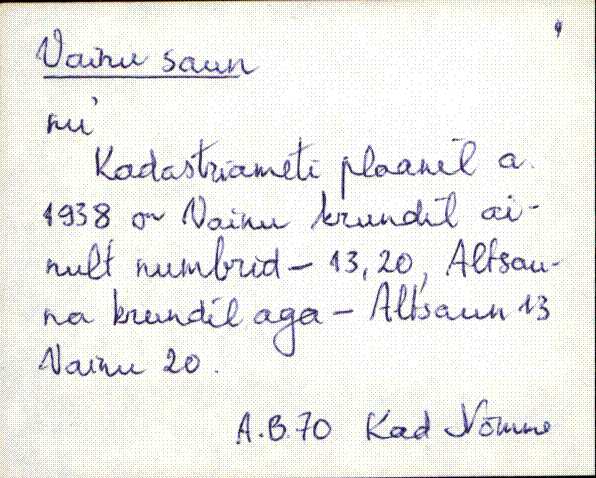 9
Vainu saun
nu'
Kadastriameti plaanil a.
1938 on Vainu krundil ai-
nult numbrid - 13, 20, Altsau-
na krundil aga - Altsaun 13
Vainu 20.
A.B.70 Kad Nõmme